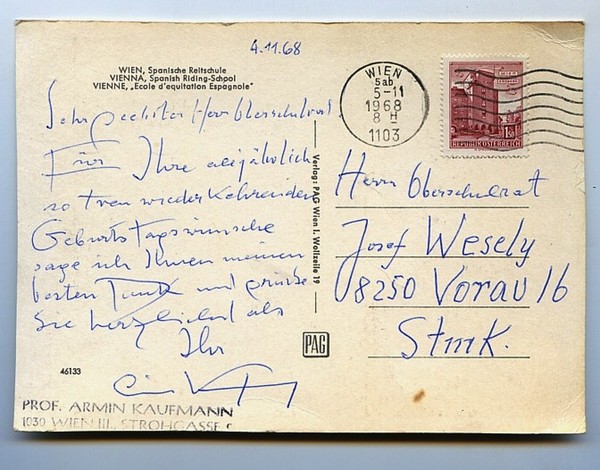 4.11.68
WIEN, Spanische Reitschule
VIENNA, Spanish Riding-School
VIENNE, „Ecole d'equitation Espagnole"
Sehr geehrter Herr Oberschulrat
Für Ihre alljährlich
so treu wiederkehrenden
Geburtstagswünsche
sage ich Ihnen meinen
besten Dank und grüße
Sie herzlichst als
Ihr
46133
PROF. ARMIN KAUFMANN
1030 WIEN III., STROHGASSE
Verlag: PAG Wien I. Wollzeile 19
PAG
WIEN
5ab
5-11
1968
8 H
1103
REPUBLIK ÖSTERREICH
Herrn Oberschulrat
Josef Wesely
8250 Vorau 16
Stmk.